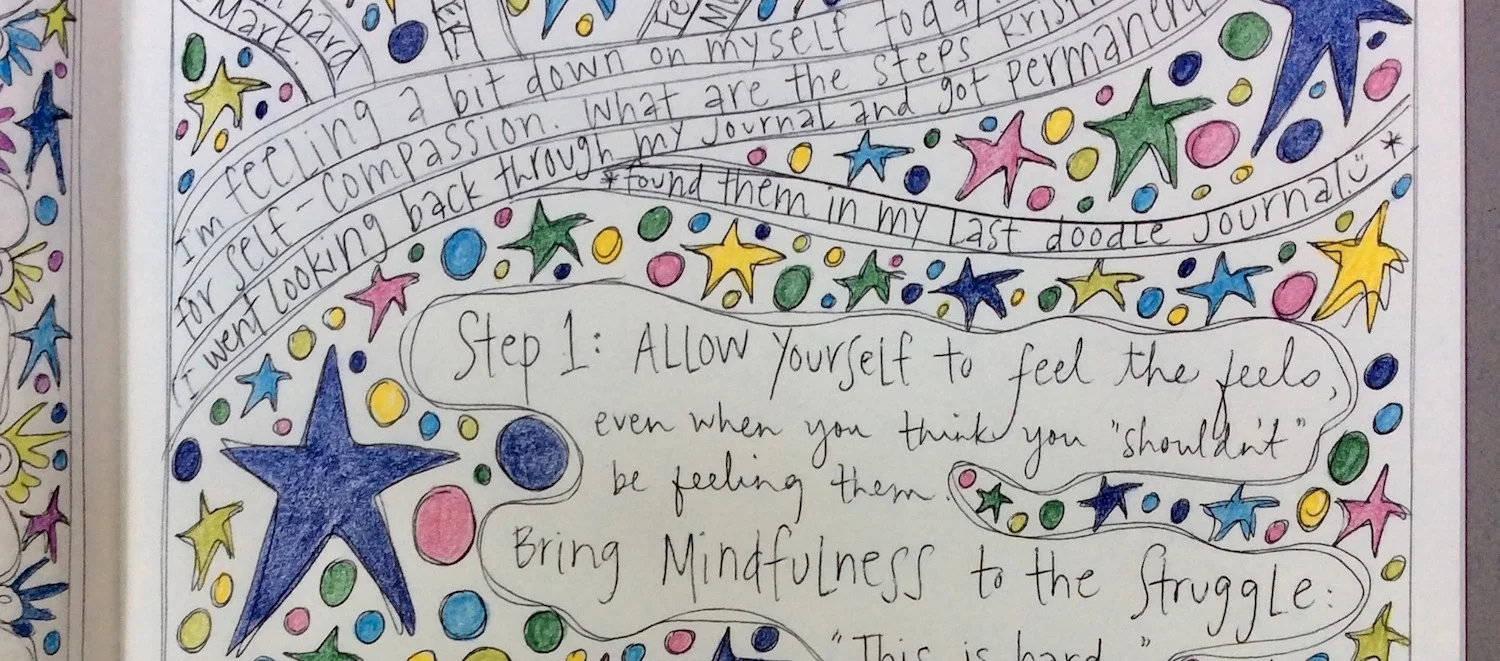 hard
Mark.
I'm feeling a bit down on myself today.
for self-compassion. What are the steps Krist
I went looking back through my journal and got permanent
*found them in my last doodle journal! *
Step 1: Allow yourself to feel the feels,
even when you think you "shouldn't"
be feeling them.
Bring Mindfulness to the Struggle:
"This is hard."